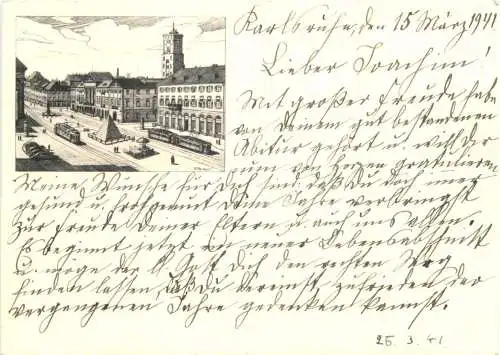 Karlsruhe, den 15 März 1941
Lieber Joachim!
Mit großer Freude habe
von Deinem gut bestandenen
Abitur gehört u. will Dir
zum von Herzen gratulieren
Meine Wünsche für Dich sind, daß Du doch immer
gesund u. frohgemut Deine Jahre verbringst
zur Freude Deiner Eltern u. auch uns allen.
Es beginnt jetzt ein neuer Lebensabschnitt
u. möge der lb. Gott Dich den rechten Weg
finden lassen, daß Du dereinst, zufrieden der
vergangenen Jahre gedenken kannst.
26. 3. 41